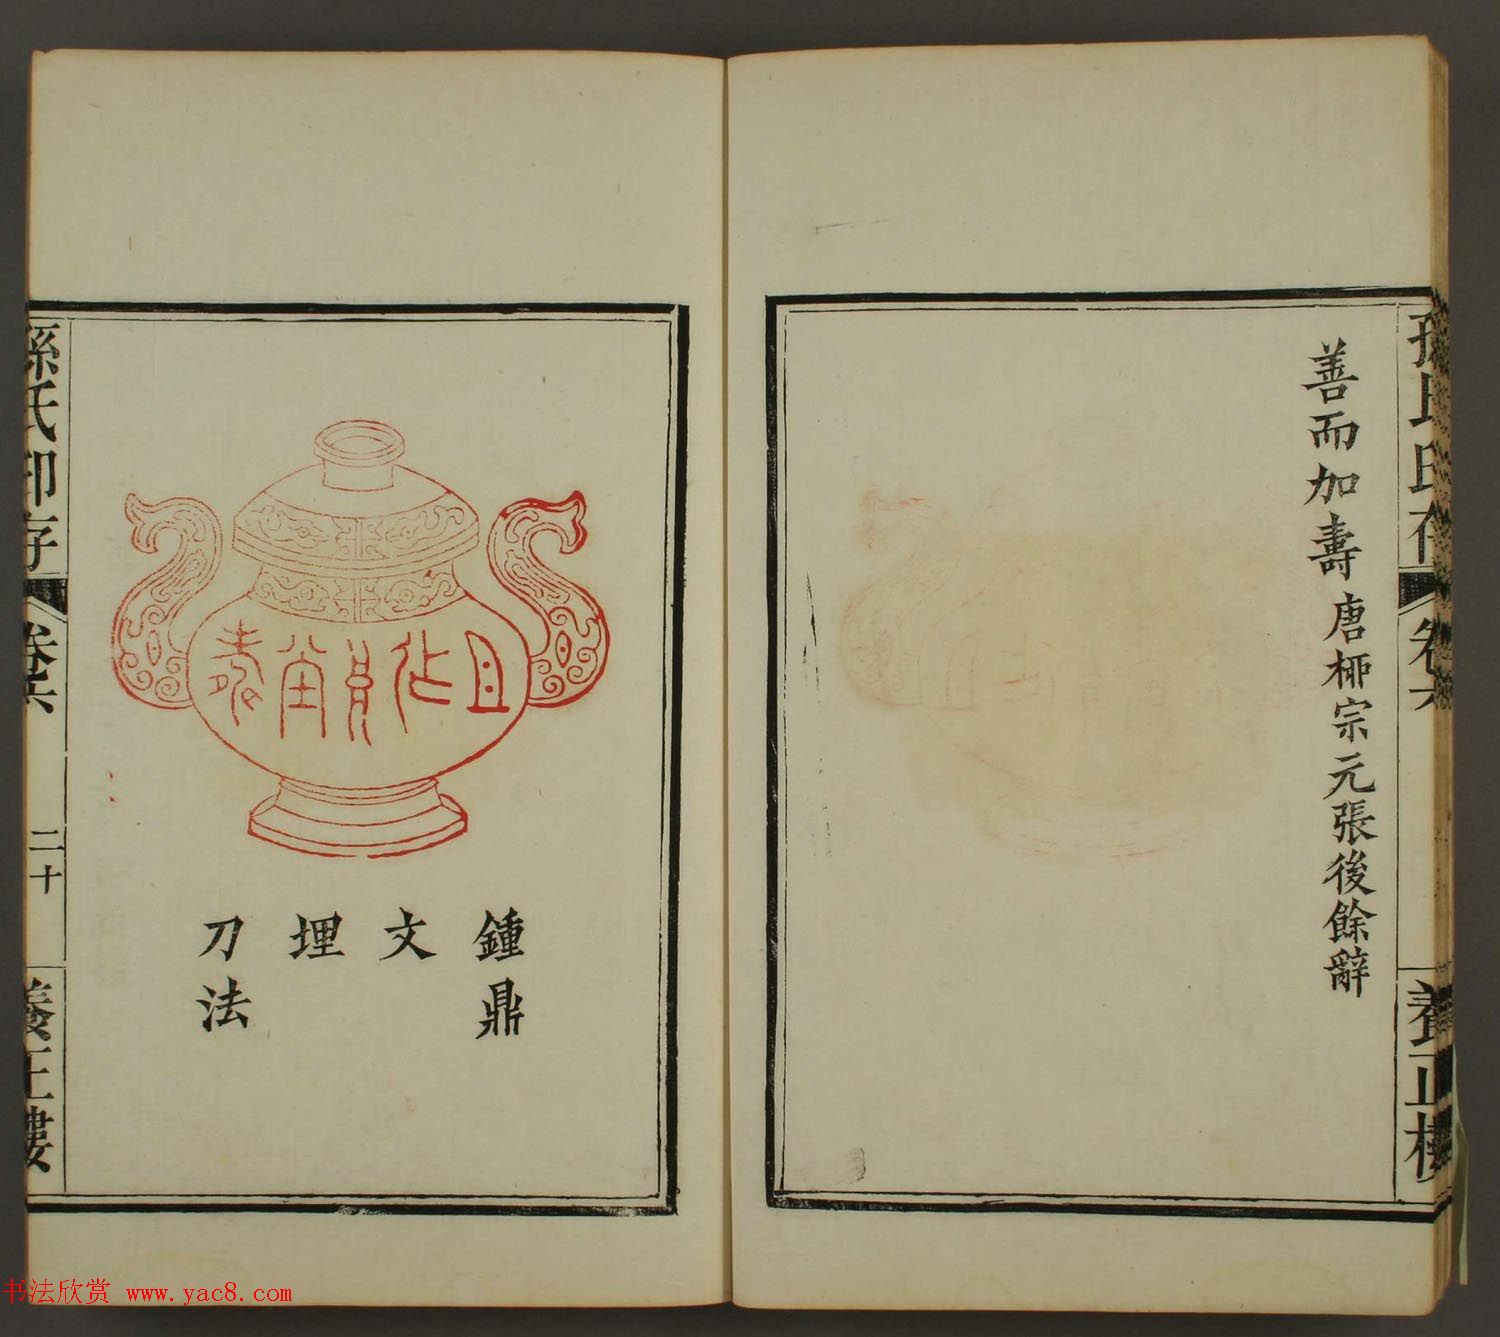 善而加壽 唐柳宗元張後餘辭
孫氏印存
卷六
養正樓
鍾鼎
文
埋
刀法
孫氏印存
卷六
二十
養正樓
书法欣赏 www.yac8.com